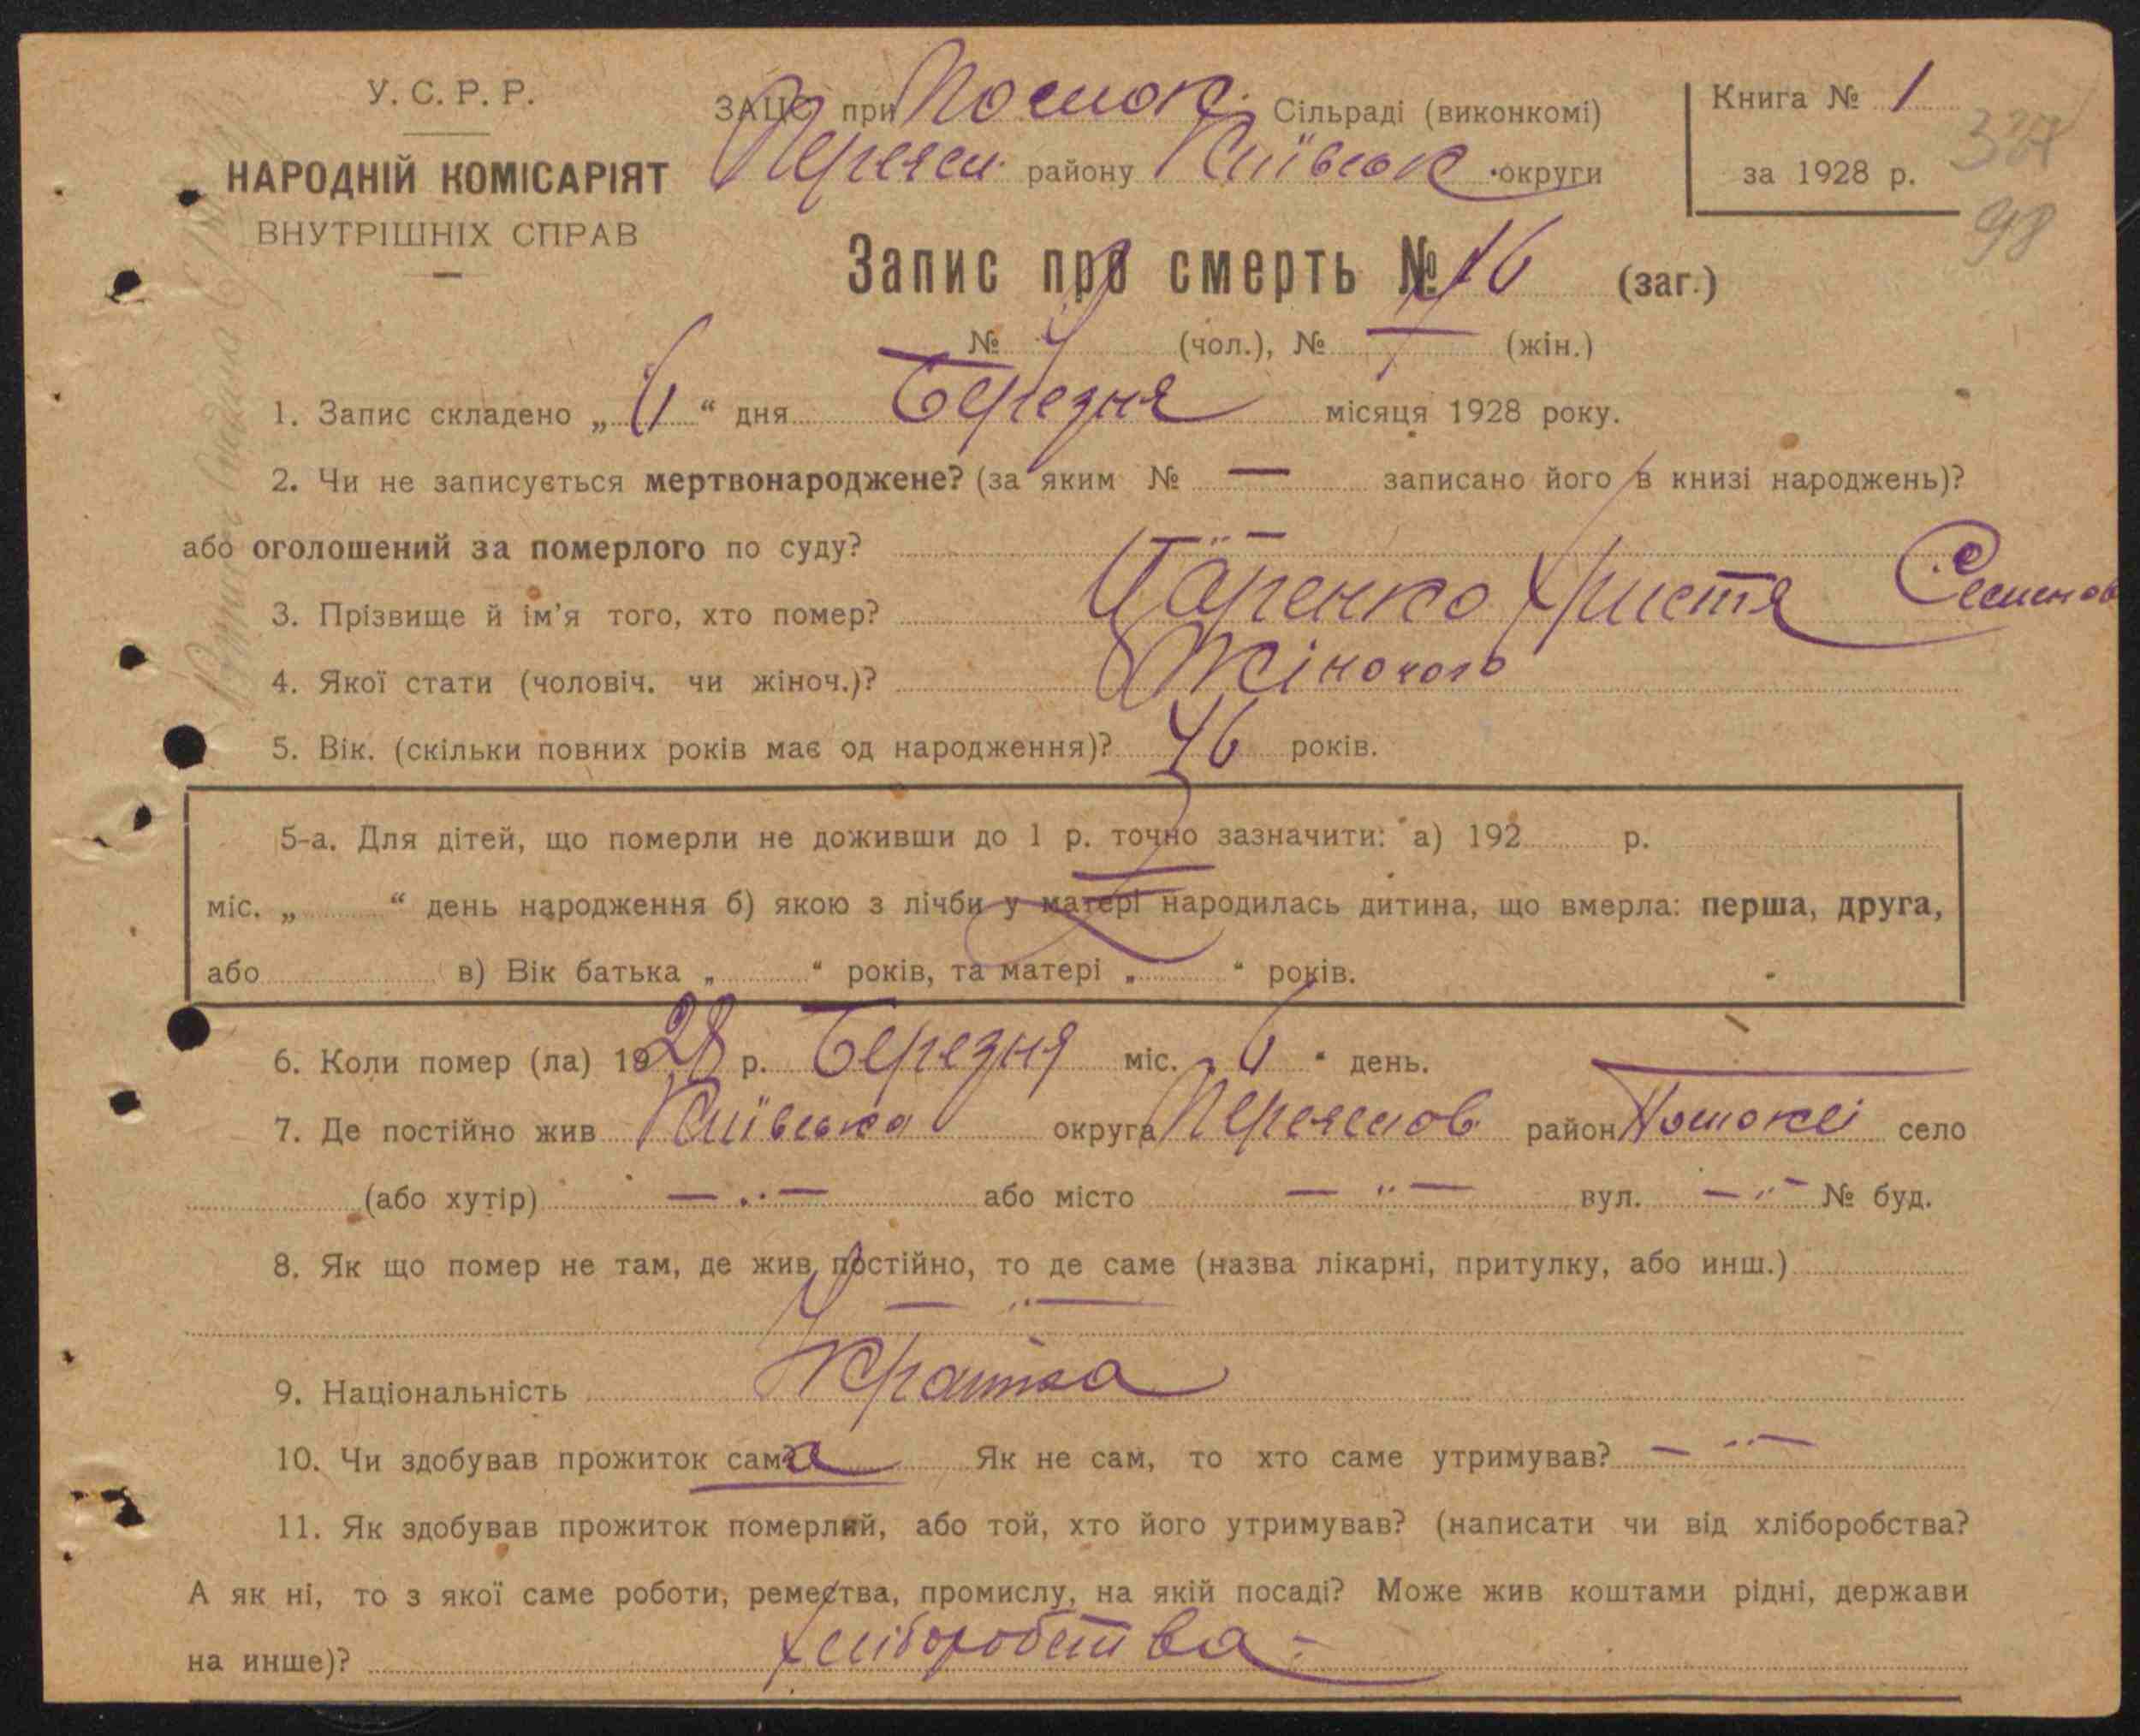 У. С. Р. Р.
НАРОДНІЙ КОМІСАРІЯТ
ВНУТРІШНІХ СПРАВ
ЗАЦС при Помок. Сільраді (виконкомі)
Переясл. району Київськ округи
Книга № 1
за 1928 р.
98
Запис про смерть № 16 (заг.)
№ (чол.), № 7 (жін.)
1. Запис складено „ 6 “ дня Березня місяця 1928 року.
2. Чи не записується мертвонароджене? (за яким № — записано його в книзі народжень)?
або оголошений за померлого по суду? — " —
3. Прізвище й ім'я того, хто помер? Царенко Христя Семенов
4. Якої стати (чоловіч. чи жіноч.)? Жіночого
5. Вік. (скільки повних років має од народження)? 46 років.
5-а. Для дітей, що померли не доживши до 1 р. точно зазначити: а) 192 р.
міс. „ “ день народження б) якою з лічби у матері народилась дитина, що вмерла: перша, друга,
або в) Вік батька „ “ років, та матері „ “ років.
6. Коли помер (ла) 1928 р. Березня міс. „ 6 “ день.
7. Де постійно жив Київська округа Переяслов район село
(або хутір) — " — або місто — " — вул. — " — № буд.
8. Як що помер не там, де жив постійно, то де саме (назва лікарні, притулку, або инш.)
— " —
9. Національність Українка
10. Чи здобував прожиток сам? а Як не сам, то хто саме утримував? — " —
11. Як здобував прожиток померлий, або той, хто його утримував? (написати чи від хліборобства?
А як ні, то з якої саме роботи, ремества, промислу, на якій посаді? Може жив коштами рідні, держави
на инше)? хліборобства